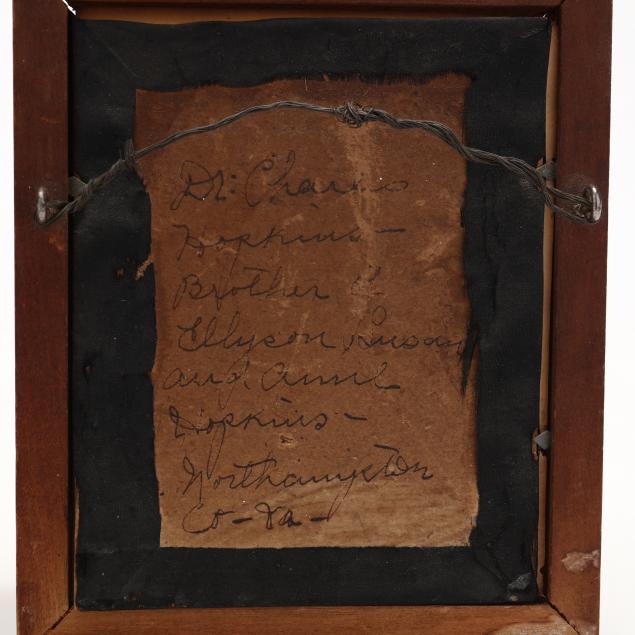 Dr: Charles
Hopkins —
Brother of
Ellyson, Susan
and Anne
Hopkins —
Northampton
Co - Va -